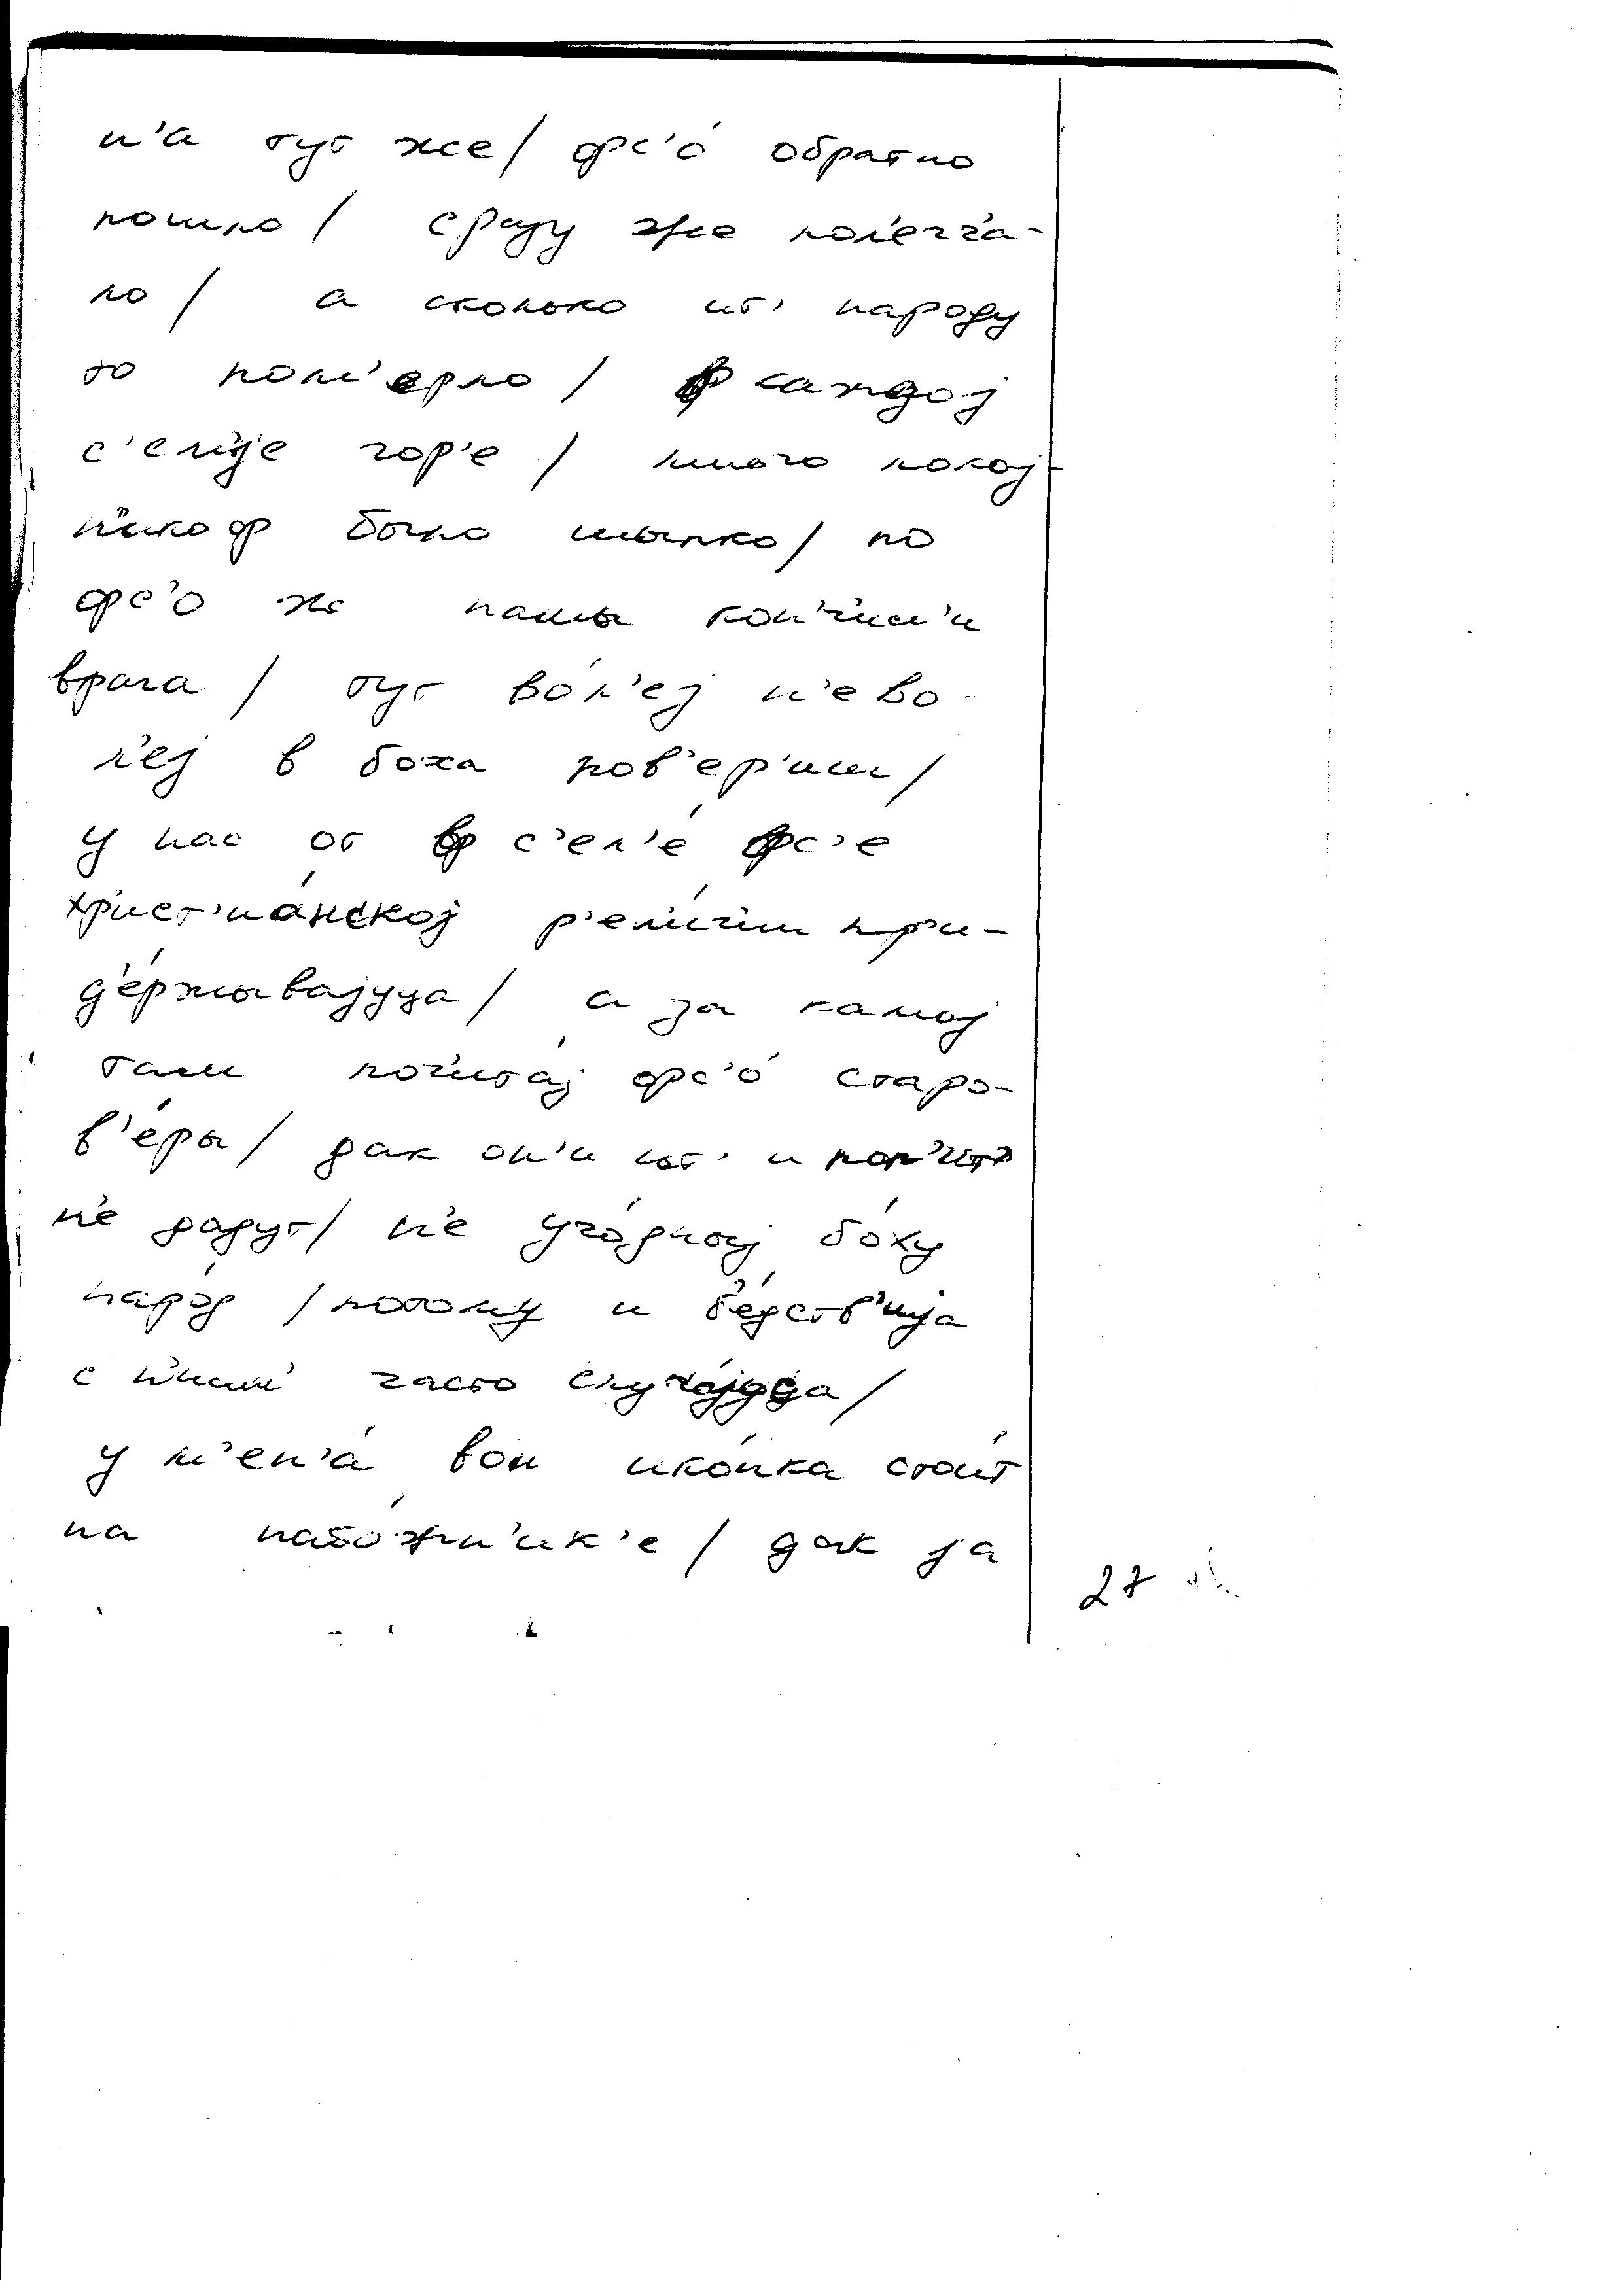 н'а тут же / фс'о́ обратно
пошло / сразу же пол'егч'а-
ло / а сколько ит' народу
то пом'ерло / ф каждој
с'ем'је гор'е / много покој-
н'икоф было шыпко / но
фс'о же нашы кон'ч'ил'и
врага / тут во́л'еј н'ево-
л'еј в боха пов'ер'иш /
у нас от ф с'ел'е́ фс'е
хр'ист'иа́нској р'ел'иѓии пр'и-
д'е́ржывајуца / а за камој
там поч'ита́ј фс'о́ старо-
в'е́ры / дак он'и ит' и поп'ит'
н'е дадут / н'е уго́дној бо́ху
наро́д / потому и б'е́дств'ија
с н'им'и часто случа́јуца /
у м'ен'а́ вон ико́нка стои́т
на набо́жн'ик'е / дак ја
27